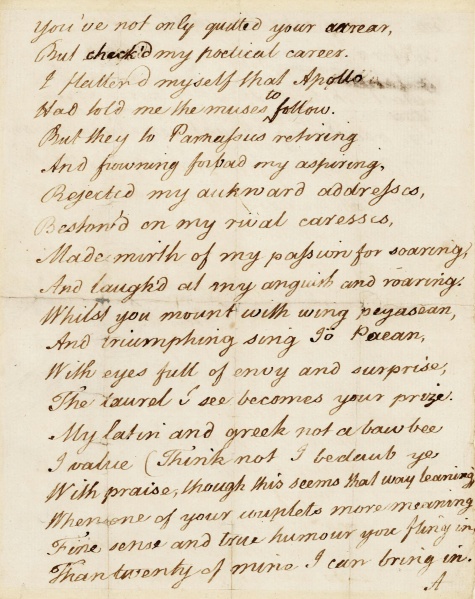 You've not only quitted your arrear,
But check'd my poetical career.
I flatter'd myself that Apollo
Had told me the muses to follow.
But they to Parnassus retiring
And frowning forbad my aspiring,
Rejected my aukward addresses,
Bestow'd on my rival caresses,
Made mirth of my passion for soaring,
And laugh'd at my anguish and roaring.
Whilst you mount with wing pegasean,
And triumphing sing Io Paean,
With eyes full of envy and surprise,
The laurel I see becomes your prize.
My latin and greek not a bawbee
I value (Think not I bedaub ye
With praise, though this seems that way leaning,
When one of your couplets more meaning
Fine sense and true humour you fling in,
Than twenty of mine I can bring in.
A